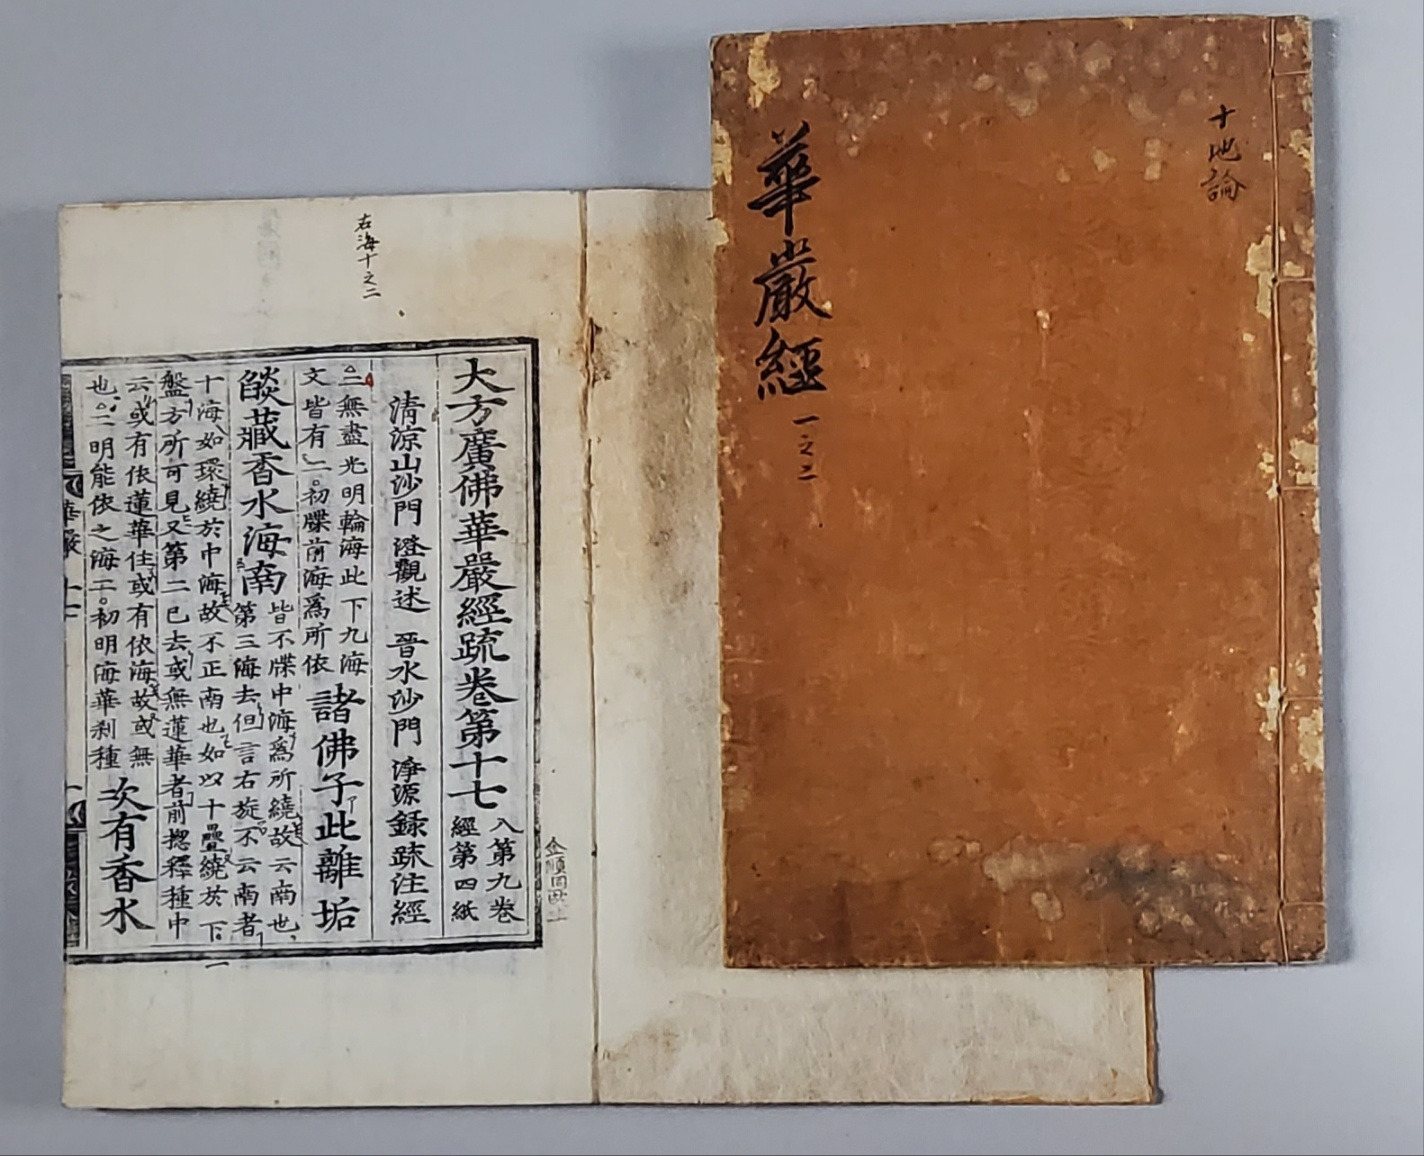 華嚴經 一之二
十地論
右海十之二
大方廣佛華嚴經疏卷第十七 入第九卷
經第四紙
清涼山沙門 澄觀述 晉水沙門 淨源錄疏注經
二無盡光明輪海此下九海
文皆有二。初牒前海爲所依
諸佛子此離垢
燄藏香水海南
皆不牒中海爲所繞故云南也
第三海去但言右旋不云南者
十海如環繞於中海故不正南也如以十疊繞於下
盤方所可見又第二已去或無蓮華者前揔釋種中
云或有依蓮華住或有依海故或無
也。二明能依之海二。初明海華刹種
次有香水
華嚴 十七